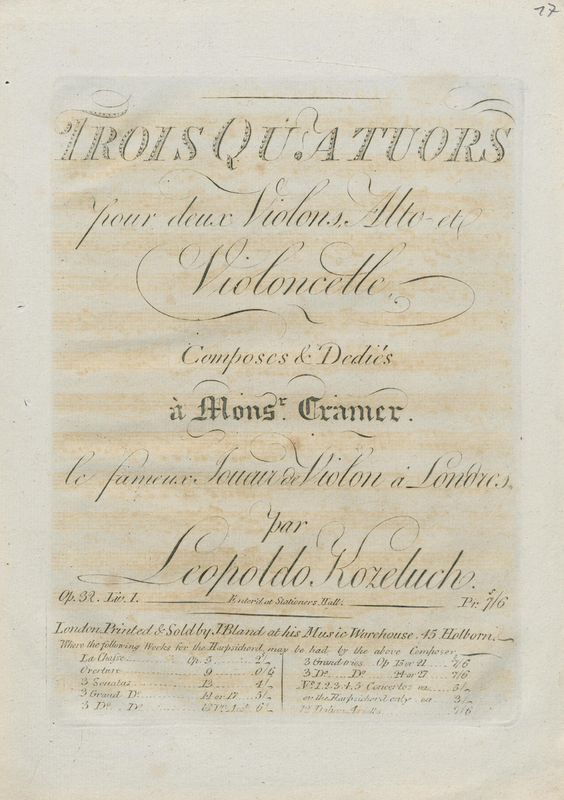 17
TROIS QUATUORS
pour deux Violons, Alto et
Violoncelle
Composes & Dediés
à Monsr. Cramer.
le fameux Jouair de Violon à Londres,
par
Leopoldo Kozeluch.
Op. 32. Liv. 1. Enter'd at Stationers Hall. Pr. 7/6
London Printed & Sold by J Bland at his Music Warehouse 45 Holborn.
Where the following Works for the Harpsichord may be had by the above Composer,
La Chasse Op 5 2/-
Overture 9 0/6
3 Sonatas 13 4/-
3 Grand Do. 14 or 17 5/-
3 Do. Do.
3 Grand trios Op 15 or 21 7/6
3 Do. Do. 24 or 27 7/6
No. 1. 2. 3. 4. 5 Concertos ea. 5/-
on the Harpsichord only ea 3/-